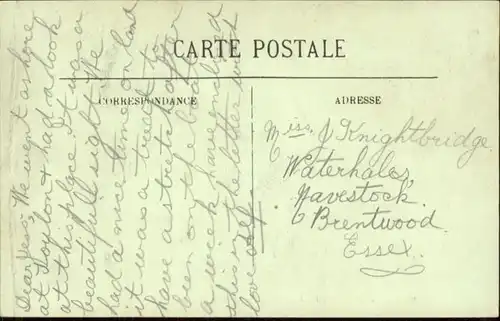 CARTE POSTALE
CORRESPONDANCE
ADRESSE
Dear Jess, We went ashore
at Toylon & had a look
at this place. It was a
beautifull sight. We
had a nice time on land
it was a treat to
have a stretch after
been on the boat
a week have enclosed
this in the letter with
love
Miss. J Knightbridge.
Waterhales,
Navestock.
Brentwood.
Essex.